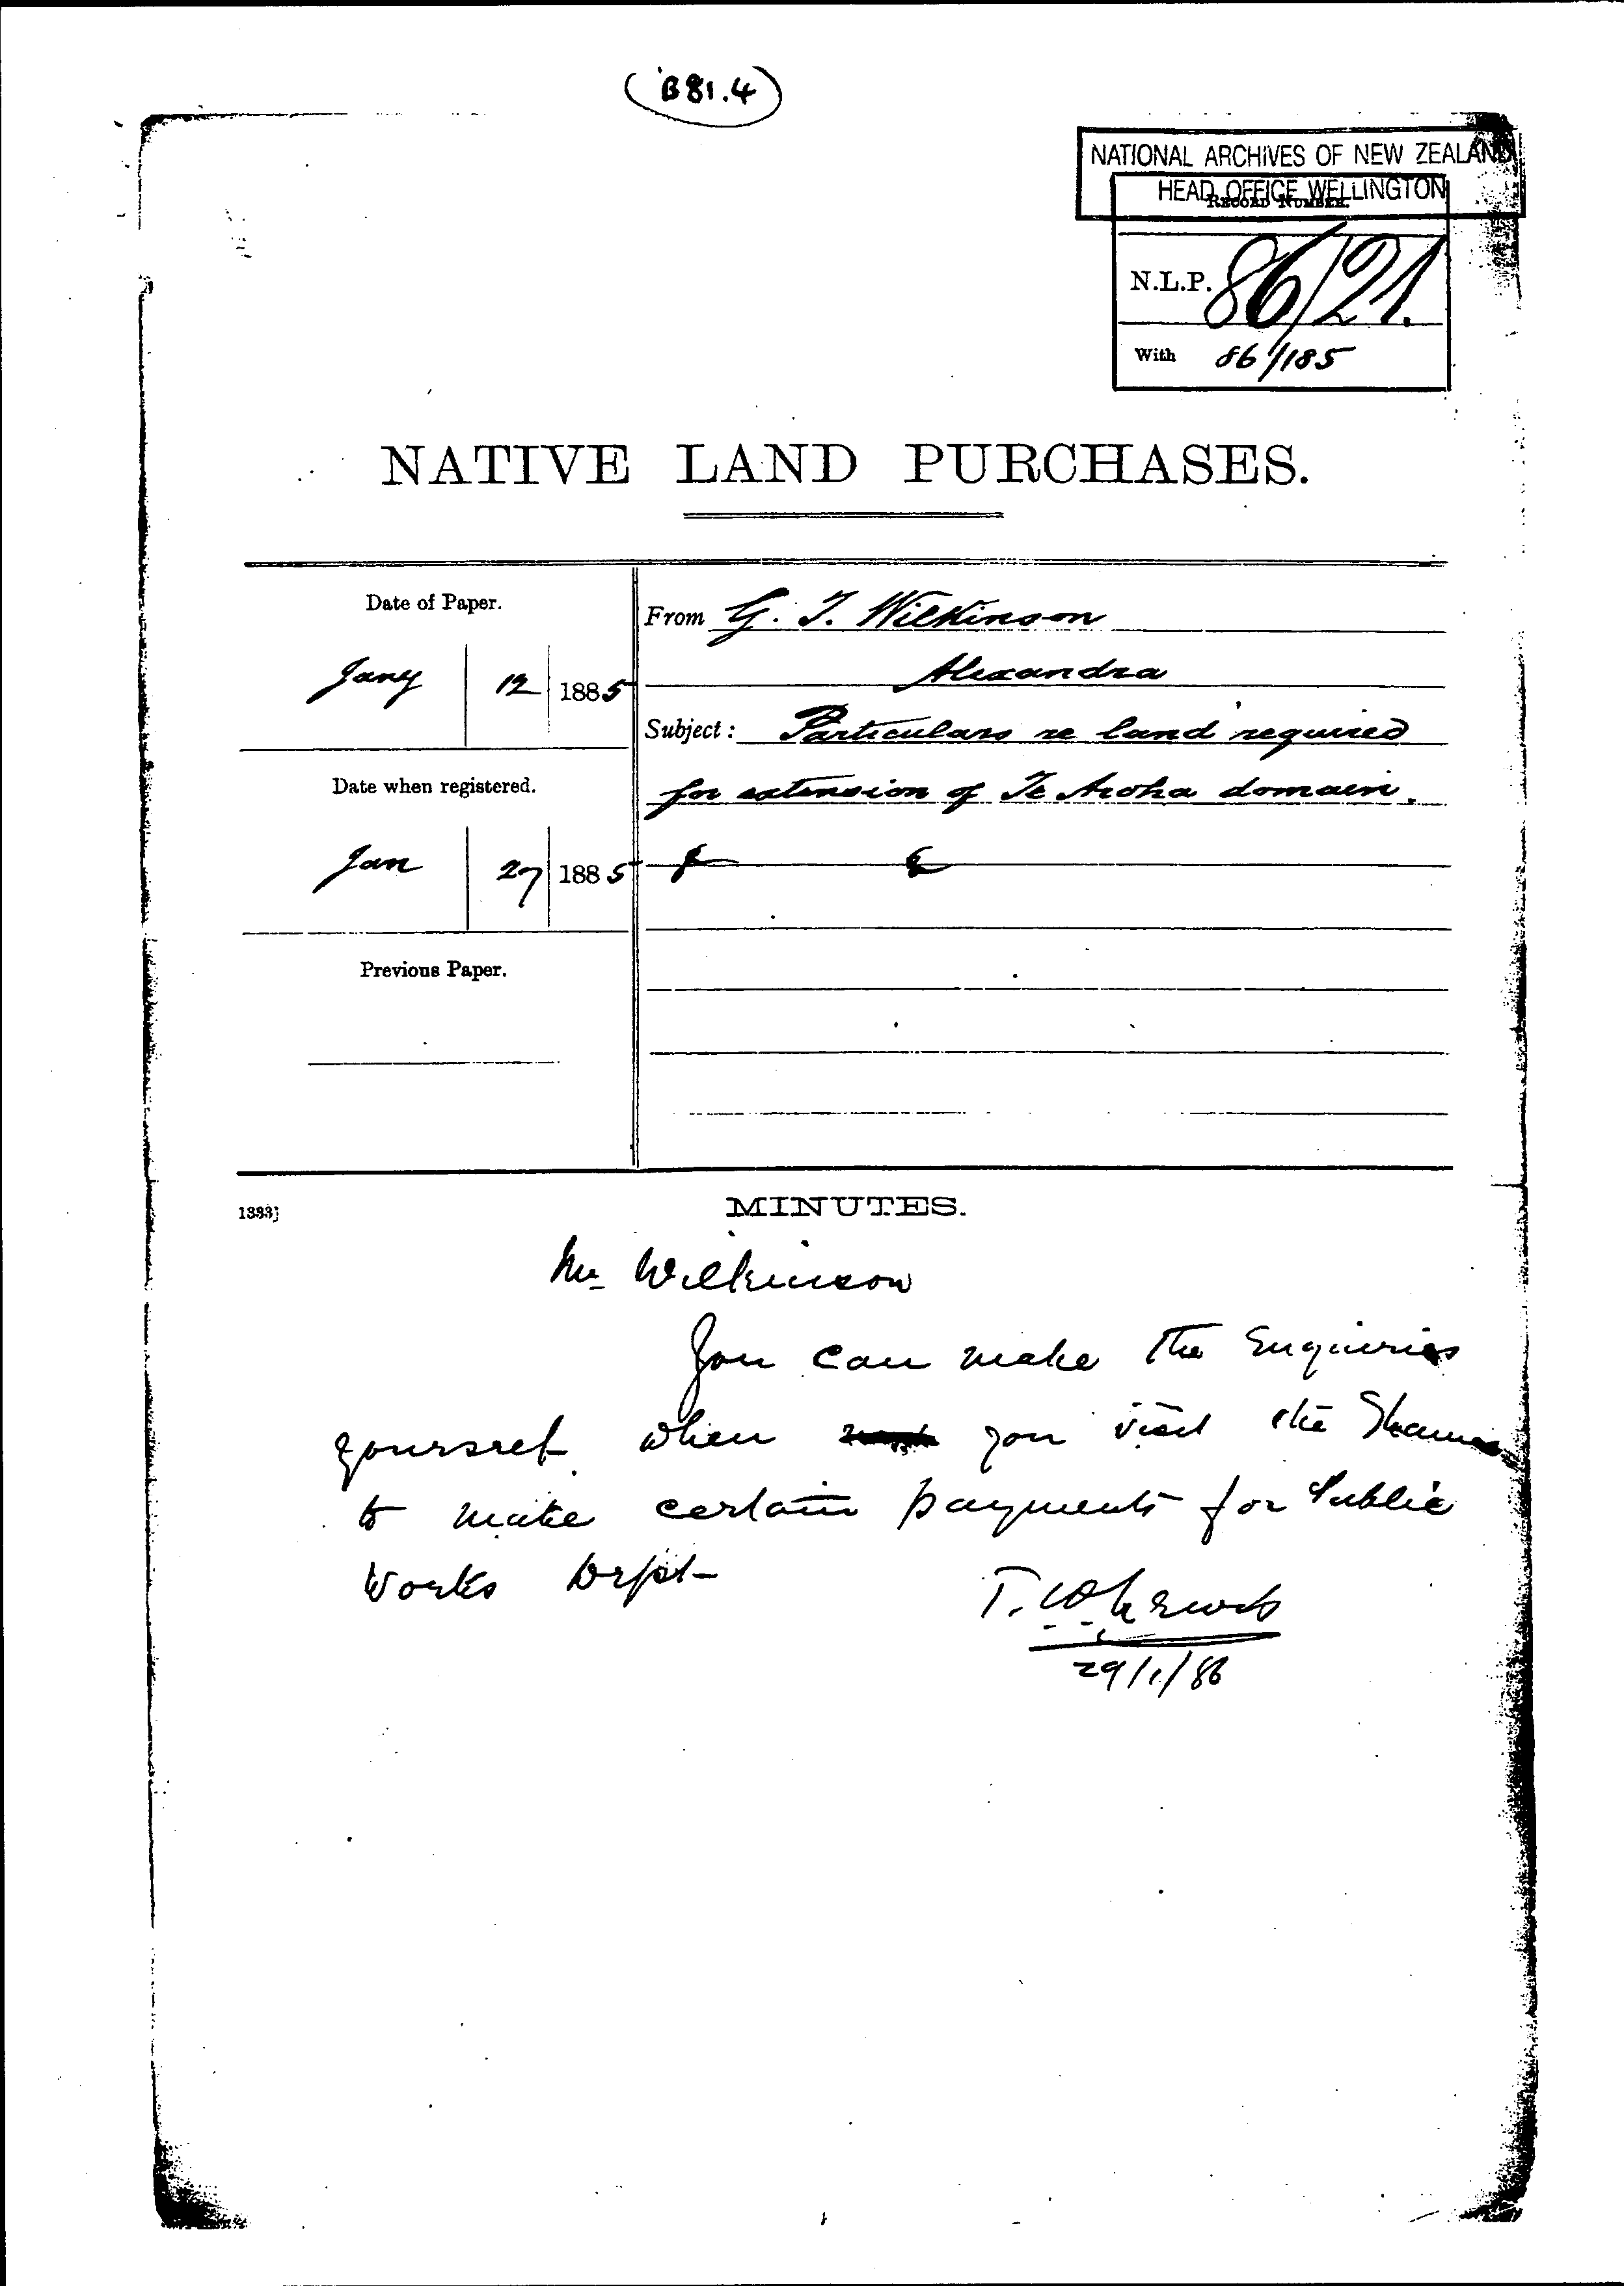 (B81.4)
NATIONAL ARCHIVES OF NEW ZEALAND
HEAD OFFICE WELLINGTON
RECORD NUMBER.
N.L.P. 86/21.
With 86/185
NATIVE LAND PURCHASES.
Date of Paper.
Jany 12 1885
Date when registered.
Jan 27 1885
Previous Paper.
From G. T. Wilkinson
Alexandra
Subject: Particulars re land required
for extension of Te Aroha domain.
1333]
MINUTES.
Mr Wilkinson
You can make the Enquiries
yourself when you visit the Thames
to make certain payments for Public
Works Dept
T. W. Lewis
29/1/86